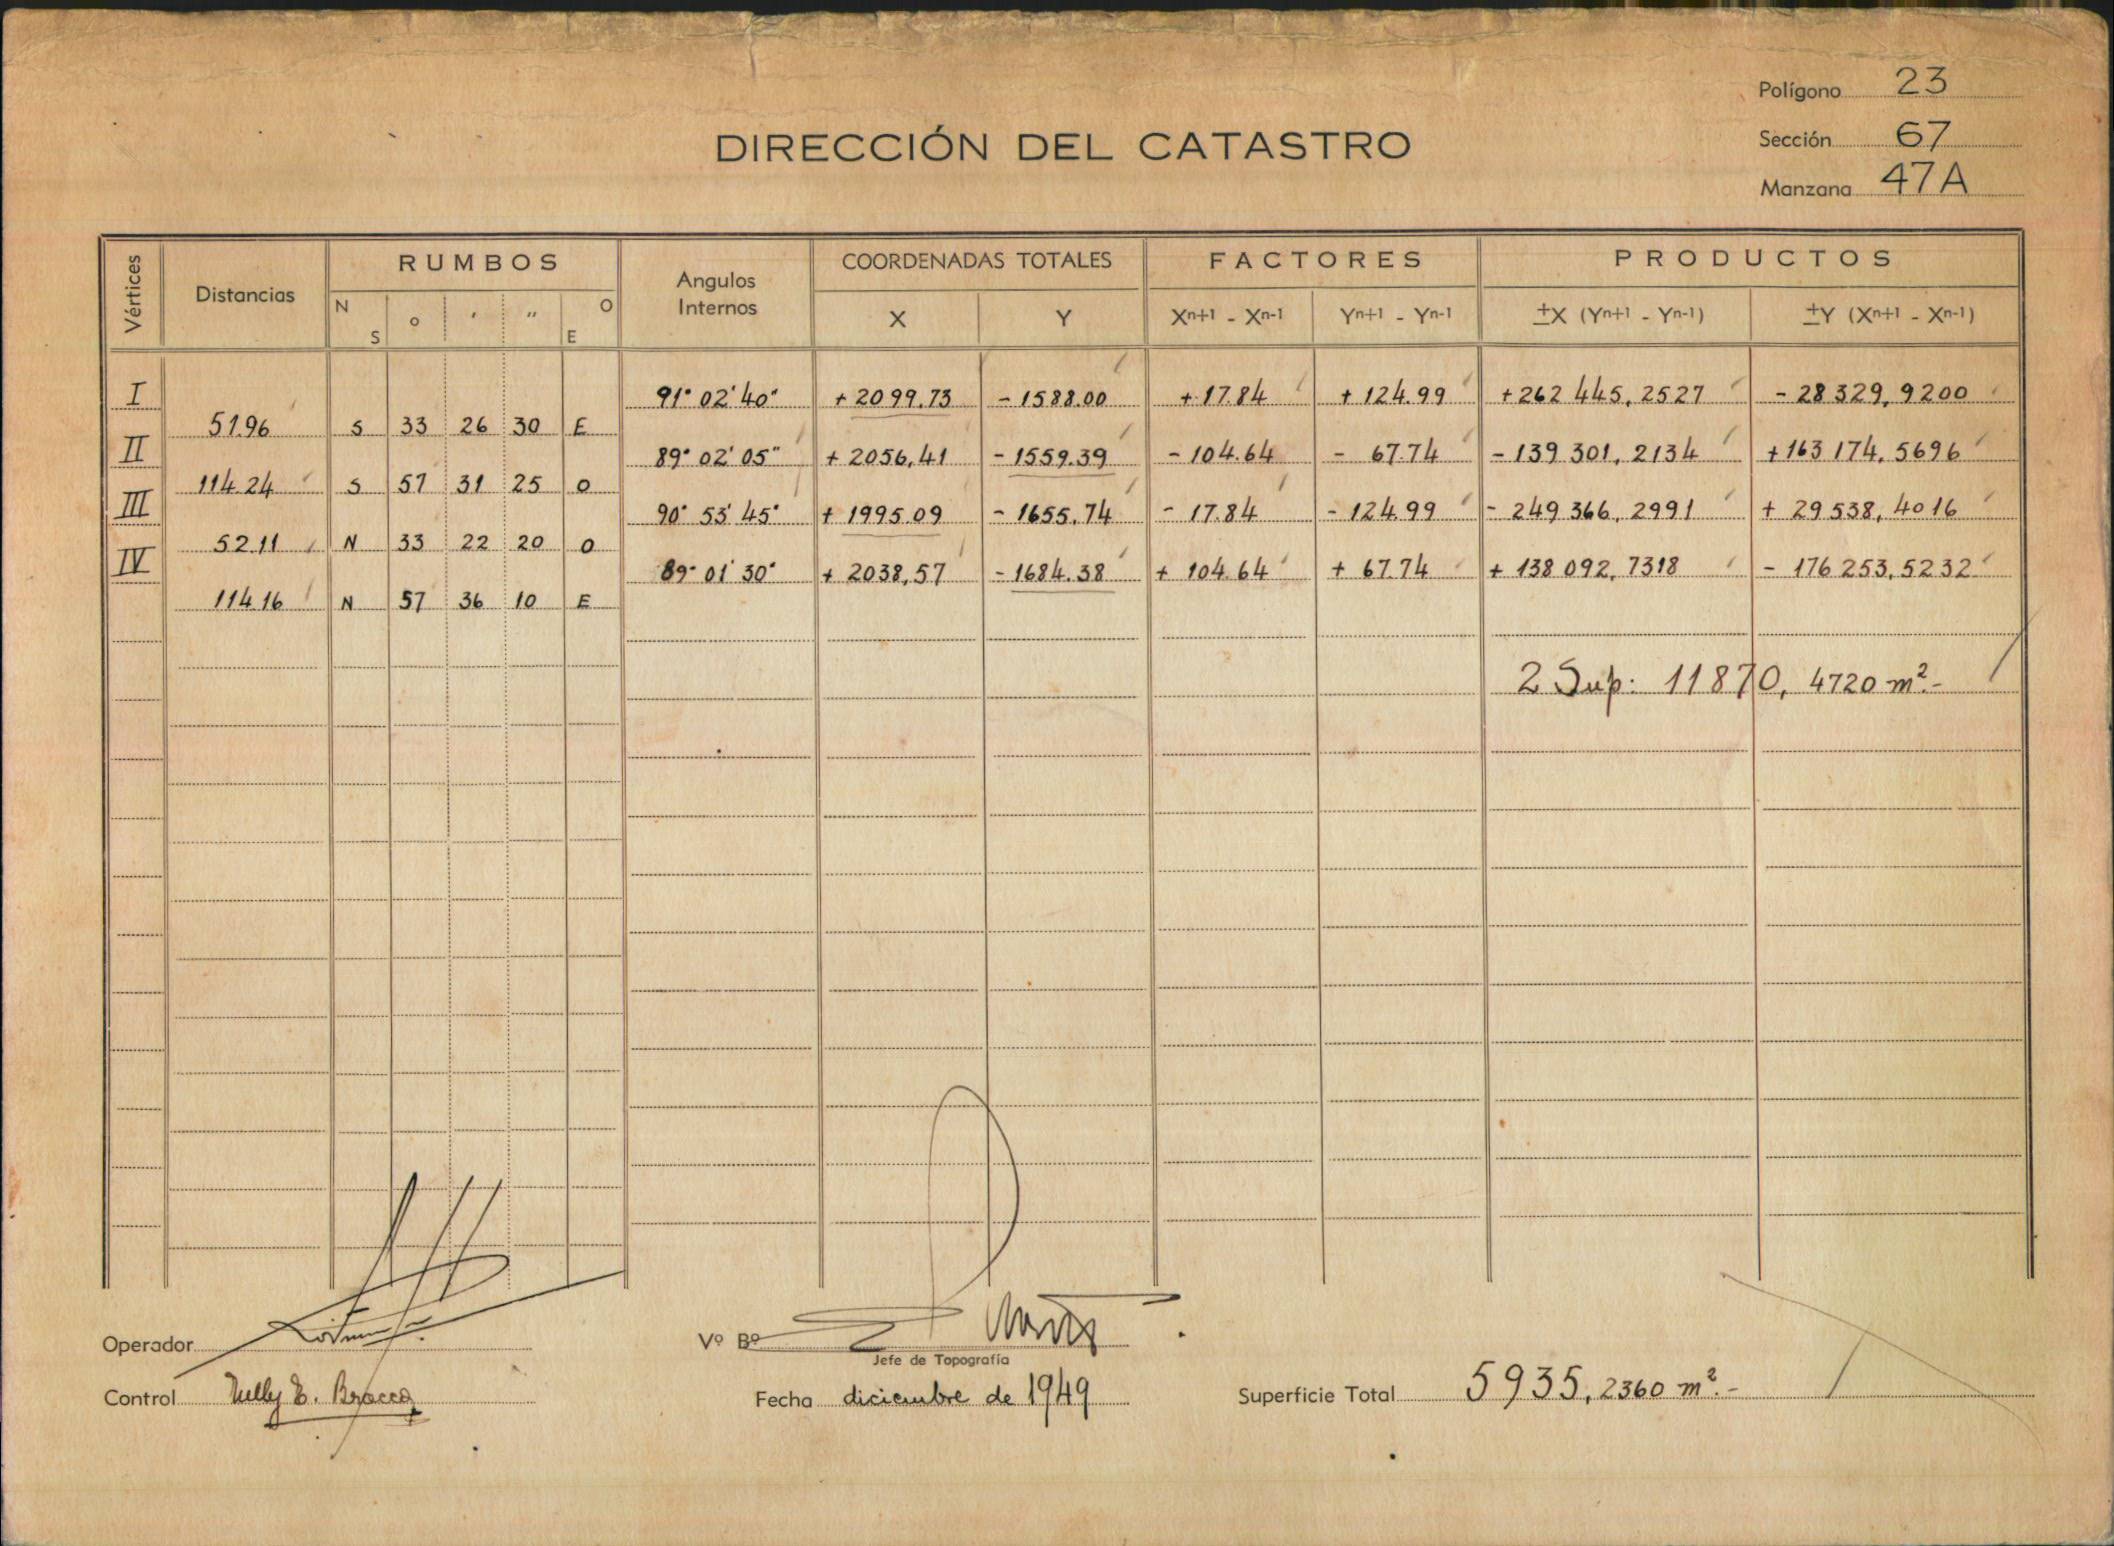 Polígono 23
DIRECCIÓN DEL CATASTRO
Sección 67
Manzana 47A
Vértices Distancias RUMBOS Angulos Internos COORDENADAS TOTALES FACTORES PRODUCTOS
N S o ′ ″ O E X Y Xn+1 - Xn-1 Yn+1 - Yn-1 ±X (Yn+1 - Yn-1) ±Y (Xn+1 - Xn-1)
I 91° 02' 40" + 2099.73 - 1588.00 + 17.84 + 124.99 + 262 445, 2527 - 28 329, 9200
51.96 S 33 26 30 E
II 89° 02' 05" + 2056,41 - 1559.39 - 104.64 - 67.74 - 139 301, 2134 + 163 174, 5696
114.24 S 57 31 25 O
III 90° 53' 45" + 1995.09 - 1655,74 - 17.84 - 124.99 - 249 366, 2991 + 29 538, 4016
52.11 N 33 22 20 O
IV 89° 01' 30" + 2038,57 - 1684.38 + 104.64 + 67.74 + 138 092, 7318 - 176 253, 5232
114.16 N 57 36 10 E
2 Sup: 11870, 4720 m².-
Operador
Vº Bº
Jefe de Topografía
Control Nelly E. Bracco
Fecha diciembre de 1949
Superficie Total 5935, 2360 m².-